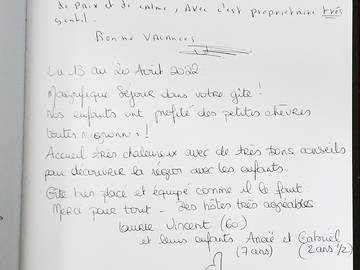 de paix et de calme, Avec c'est proprietaire très
gentil.
Bonne VACANCES
Du 13 au 20 Avril 2022
Magnifique Séjour dans votre gîte !
Nos enfants ont profité des petites chèvres
toutes mignonnes !
Accueil très chaleureux avec de très bons conseils
pour découvrir la région avec les enfants
Gîte bien placé et équipé comme il le faut
Merci pour tout - Des hôtes très agréables
Laurie Vincent (60)
et leurs enfants Anaë et Gabriel
(7 ans) (2 ans 1/2)